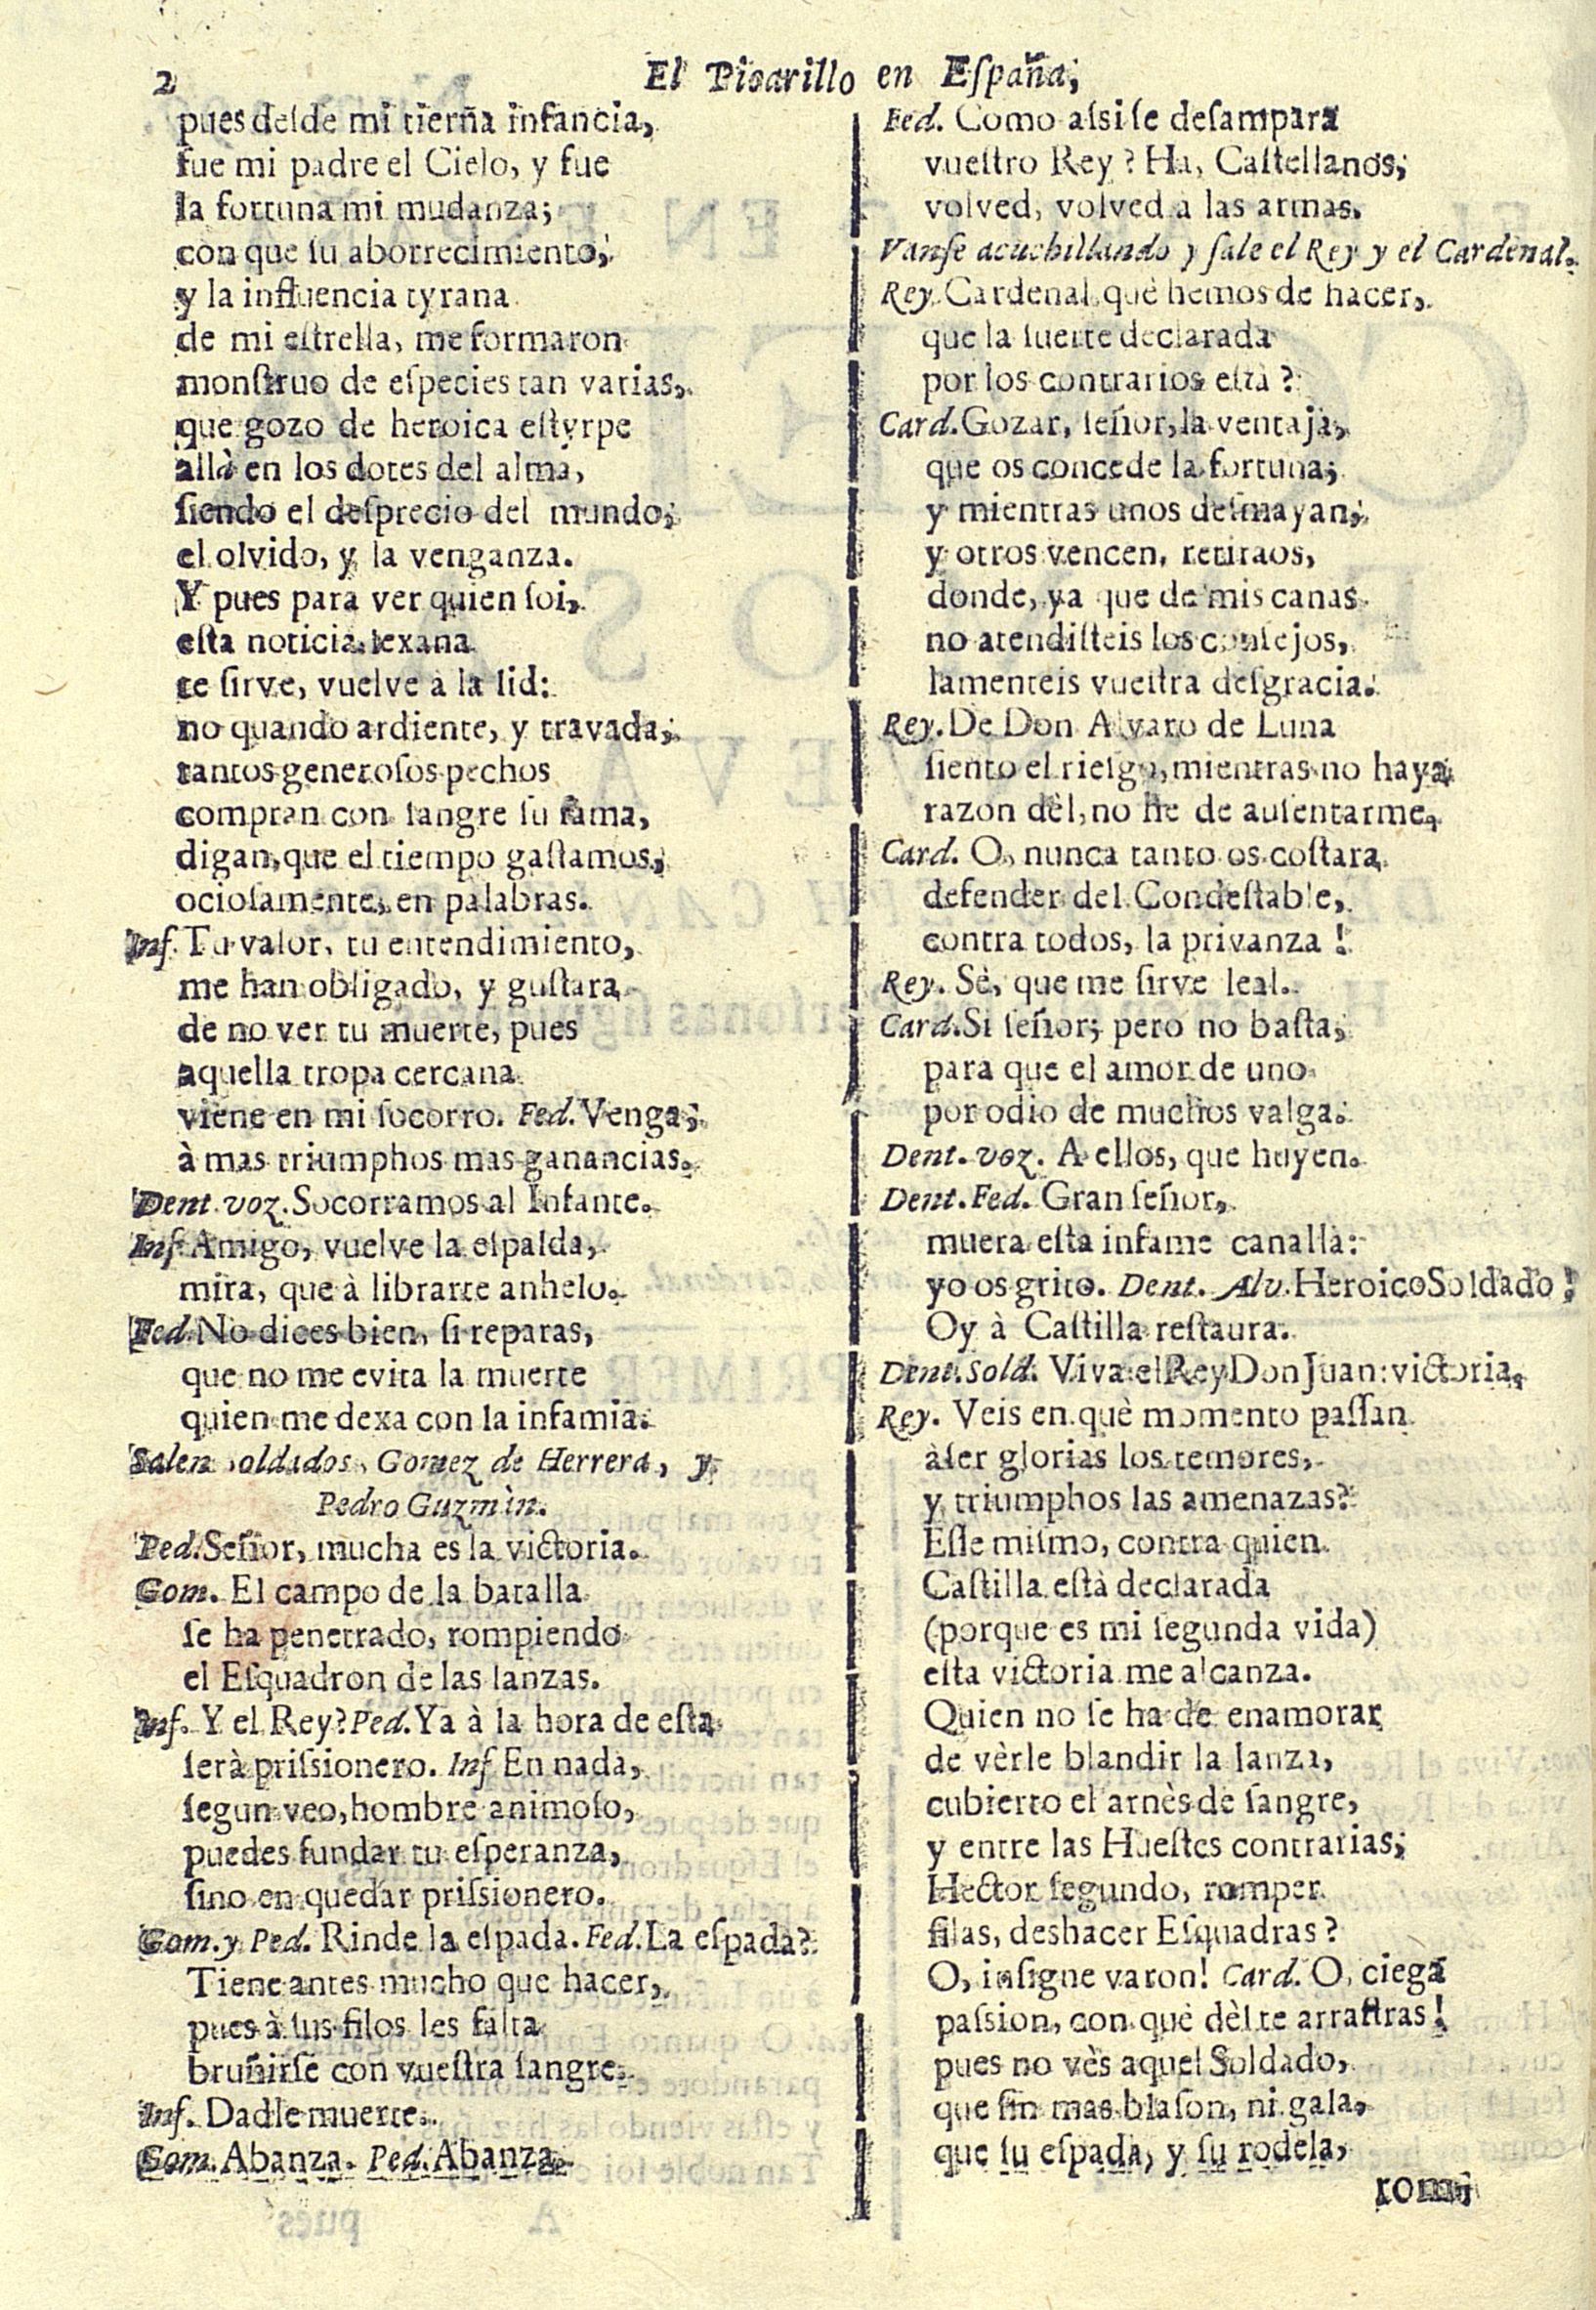 2 El Picarillo en Eſpaña,
pues deſde mi tierña infancia,
fue mi padre el Cielo, y fue
la fortuna mi mudanza;
con que ſu aborrecimiento,
y la influencia tyrana
de mi eſtrella, me formaron
monſtruo de eſpecies tan varias,
que gozo de heroica eſtyrpe
allà en los dotes del alma,
ſiendo el deſprecio del mundo,
el olvido, y la venganza.
Y pues para ver quien ſoi,
eſta noticia lexana
te ſirve, vuelve à la lid:
no quando ardiente, y travada,
tantos generoſos pechos
compran con ſangre ſu fama,
digan, que el tiempo gaſtamos,
ocioſamente, en palabras.
Inf. Tu valor, tu entendimiento,
me han obligado, y guſtara
de no ver tu muerte, pues
aquella tropa cercana
viene en mi ſocorro. Fed. Venga;
à mas triumphos mas ganancias.
Dent. voz. Socorramos al Infante.
Inf. Amigo, vuelve la eſpalda,
mira, que à librarte anhelo.
Fed. No dices bien, ſi reparas,
que no me evita la muerte
quien me dexa con la infamia.
Salen ſoldados, Gomez de Herrera, y
Pedro Guzmàn.
Ped. Señor, mucha es la victoria.
Gom. El campo de la batalla
ſe ha penetrado, rompiendo
el Eſquadron de las lanzas.
Inf. Y el Rey? Ped. Ya à la hora de eſta
ſerà priſsionero. Inf. En nada,
ſegun veo, hombre animoſo,
puedes fundar tu eſperanza,
ſino en quedar priſsionero.
Gom. y Ped. Rinde la eſpada. Fed. La eſpada?
Tiene antes mucho que hacer,
pues à ſus filos les falta
bruñirſe con vueſtra ſangre.
Inf. Dadle muerte.
Gom. Abanza. Ped. Abanza.
Fed. Como aſsi ſe deſampara
vueſtro Rey? Ha, Caſtellanos;
volved, volved à las armas.
Vanſe acuchillando y ſale el Rey y el Cardenal.
Rey. Cardenal, què hemos de hacer,
que la ſuerte declarada
por los contrarios eſtà?
Card. Gozar, ſeñor, la ventaja,
que os concede la fortuna;
y mientras unos deſmayan,
y otros vencen, retiraos,
donde, ya que de mis canas
no atendiſteis los conſejos,
lamenteis vueſtra deſgracia.
Rey. De Don Alvaro de Luna
ſiento el rieſgo, mientras no haya
razon dèl, no he de auſentarme.
Card. O, nunca tanto os coſtara
defender del Condeſtable,
contra todos, la privanza!
Rey. Sè, que me ſirve leal.
Card. Si ſeñor; pero no baſta,
para que el amor de uno
por odio de muchos valga.
Dent. voz. A ellos, que huyen.
Dent. Fed. Gran ſeñor,
muera eſta infame canalla:
yo os grito. Dent. Alv. Heroico Soldado!
Oy à Caſtilla reſtaura.
Dent. Sold. Viva el Rey Don Juan: victoria.
Rey. Veis en què momento paſſan
à ſer glorias los temores,
y triumphos las amenazas?
Eſſe miſmo, contra quien
Caſtilla eſtà declarada
(porque es mi ſegunda vida)
eſta victoria me alcanza.
Quien no ſe ha de enamorar
de vèrle blandir la lanza,
cubierto el arnès de ſangre,
y entre las Hueſtes contrarias;
Hector ſegundo, romper
filas, deshacer Eſquadras?
O, inſigne varon! Card. O, ciega
paſsion, con què dèl te arraſtras!
pues no vès aquel Soldado,
que ſin mas blaſon, ni gala,
que ſu eſpada, y ſu rodela,